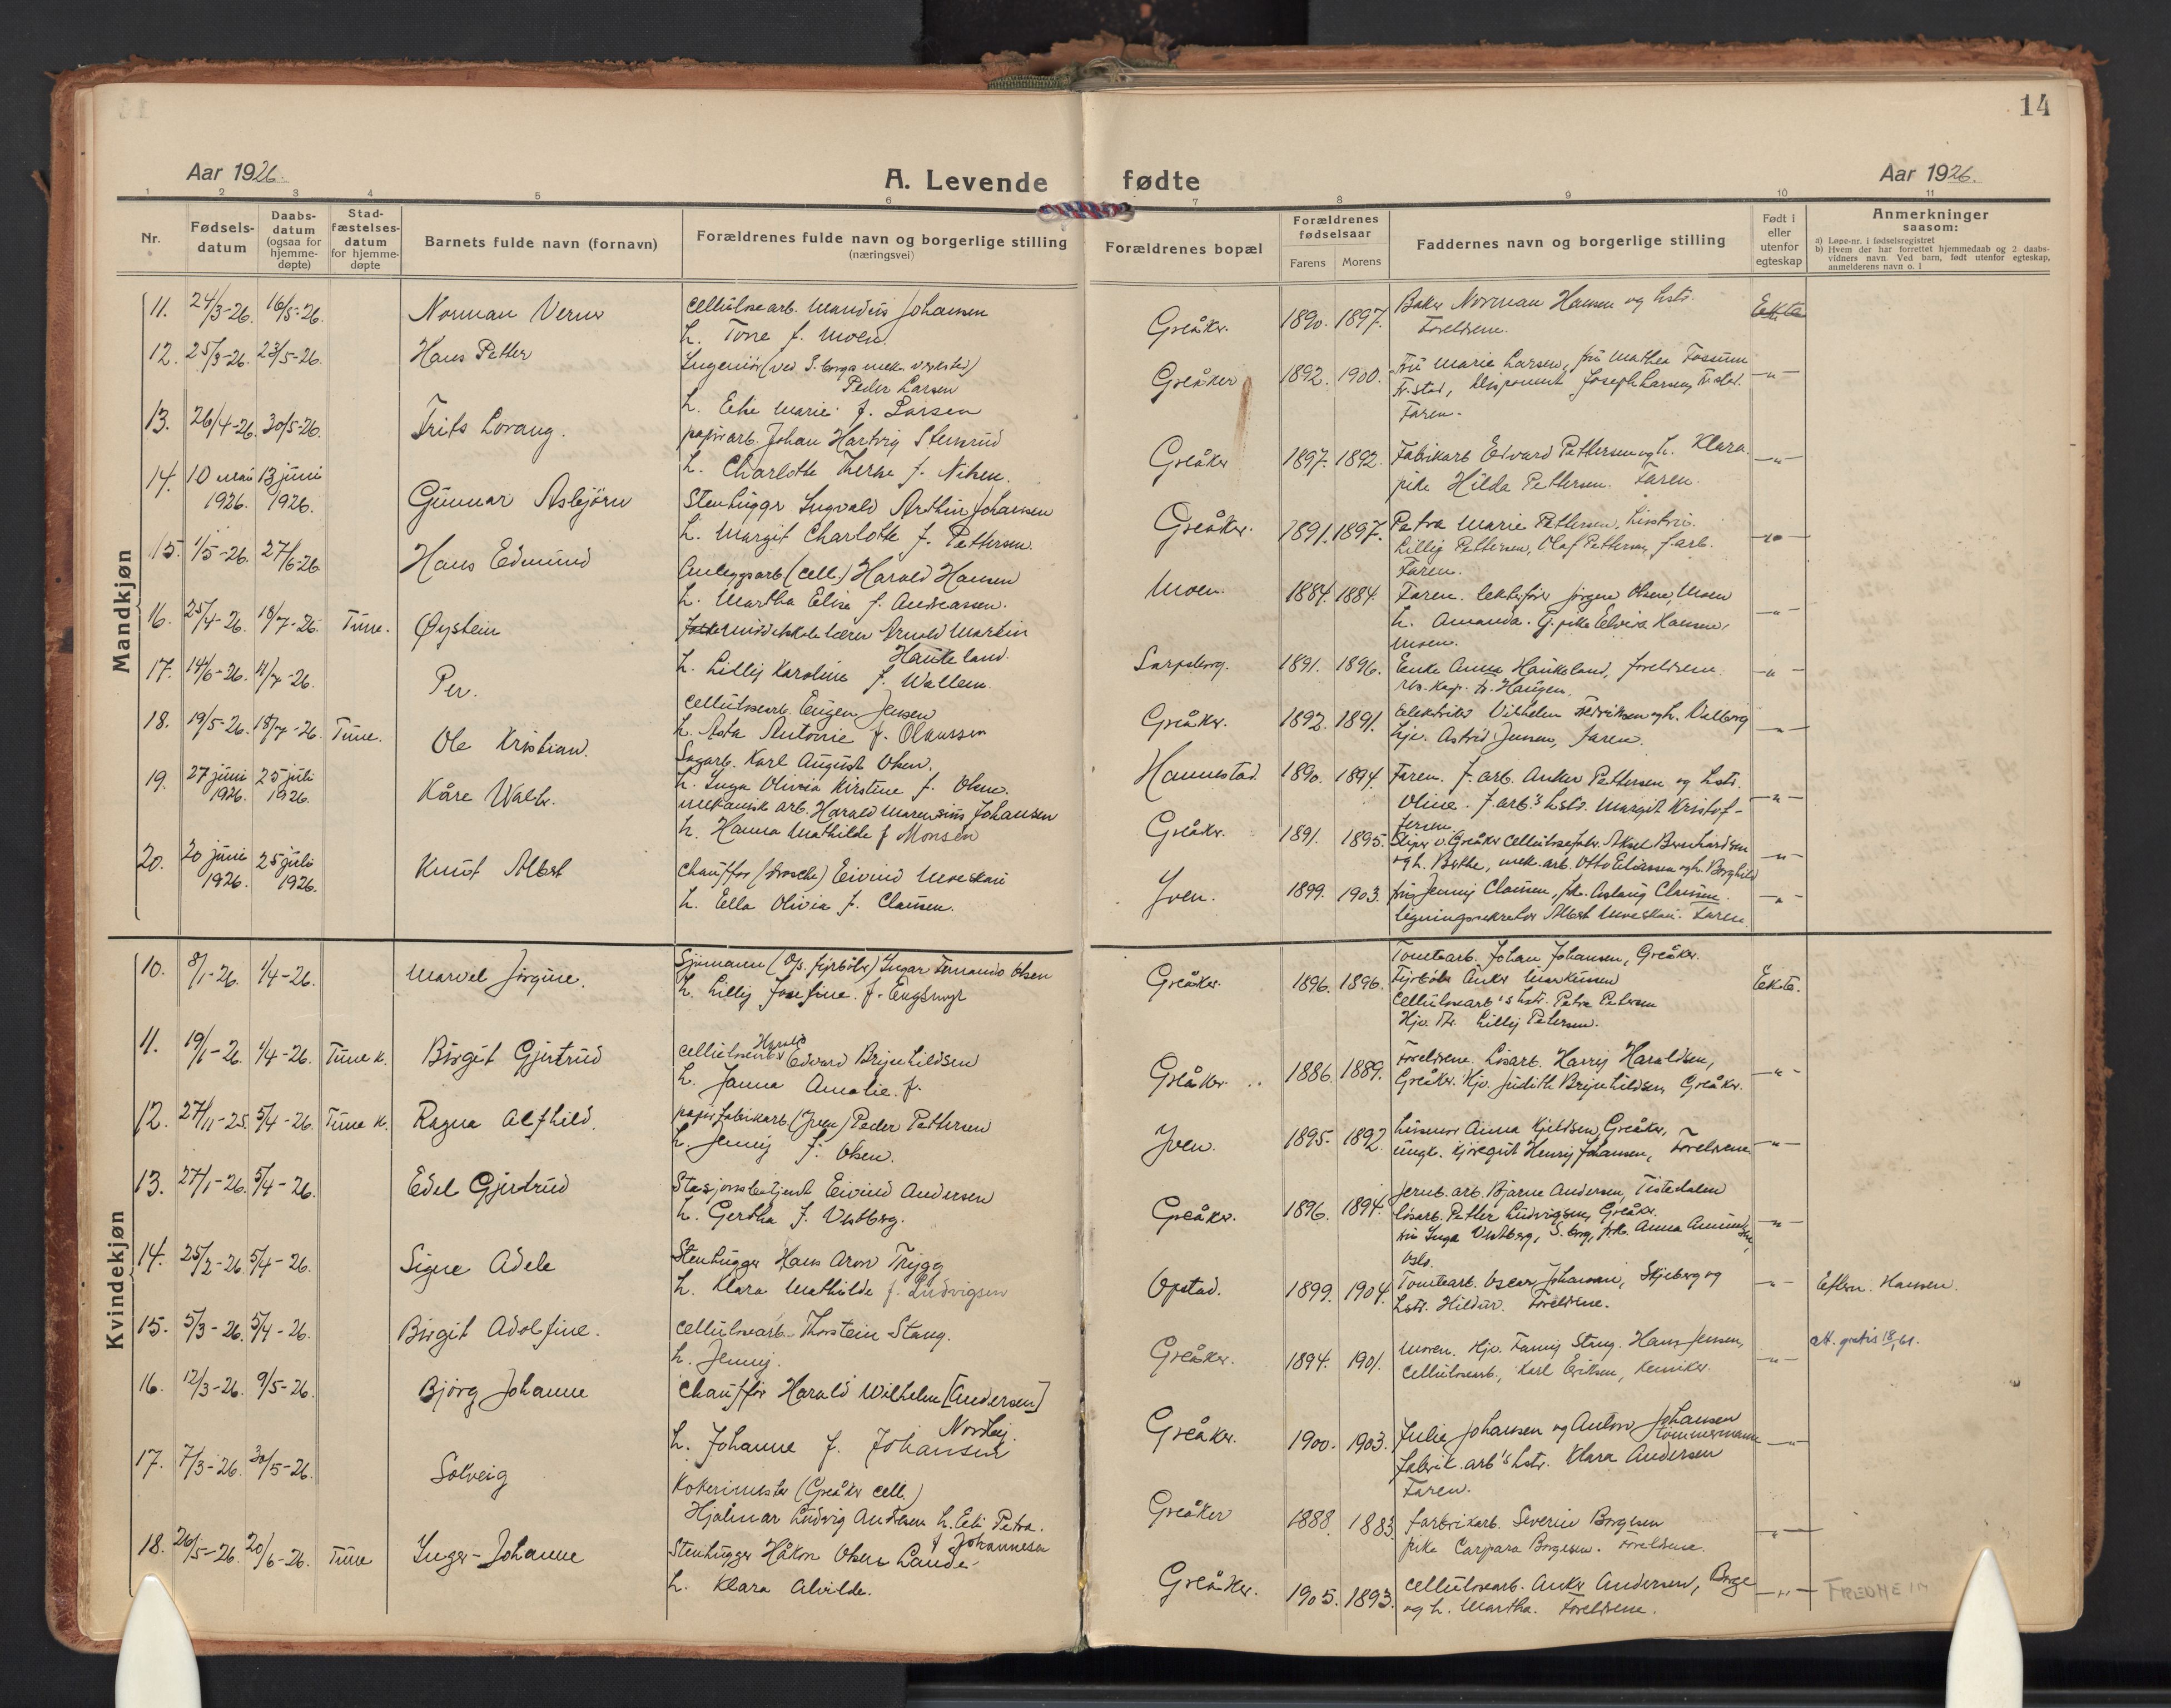 14
Aar 1926.
A. Levende fødte
Aar 1926.
1 2 3 4 5 6 7 8 9 10 11
Nr.
Fødsels-
datum
Daabs-
datum
(ogsaa for
hjemme-
døpte)
Stad-
fæstelses-
datum
for hjemme-
døpte
Barnets fulde navn (fornavn)
Forældrenes fulde navn og borgerlige stilling
(næringsvei)
Forældrenes bopæl
Forældrenes
fødselsaar
Farens Morens
Faddernes navn og borgerlige stilling
Født i
eller
utenfor
egteskap
Anmerkninger
saasom:
a) Løpe-nr. i fødselsregistret
b) Hvem der har forrettet hjemmedaab og 2 daabs-
vidners navn. Ved barn, født utenfor egteskap,
anmelderens navn o. l
Mandkjøn
11. 24/3-26. 16/5-26. Norman Verner
cellulosearb. Mandius Johansen
h. Tone f. Moen.
Greåker. 1890. 1897.
Baker Norman Hansen og hstr.
Foreldrene.
Ekte
12. 25/3-26. 23/5-26. Hans Petter
Ingeniør (ved S.borgs mek. verksted)
Peder Larsen
h. Else Marie f. Larsen
Greåker 1892. 1900.
Fru Marie Larsen, fru Mathea Fossum
Fr.stad, disponent Joseph Larsen, Fr.stad.
Faren.
-"-
13. 26/4-26. 30/5-26. Frits Lorang.
papirarb. Johan Hartvig Stensrud
h. Charlotte Therese f. Nilsen.
Greåker 1897. 1892.
Fabrikarb Edvard Pettersen og h. Klara.
pike Hilda Pettersen. Faren.
-"-
14. 10 mai 1926. 13 juni 1926. Gunnar Asbjørn
Stenhugger Ingvald Arthur Johansen
h. Margit Charlotte f. Pettersen.
Greåker. 1891. 1897.
Petra Marie Pettersen, hustru.
Lilly Pettersen, Olaf Pettersen, f.arb.
Faren.
-"-
15. 1/5-26. 27/6-26 Hans Edmund
Anleggsarb (cell.) Harald Hansen
h. Martha Elise f. Andreassen.
Moen. 1884. 1884.
Faren. Jørgen Olsen, Moen
h. Amanda. G.pike Elvira Hansen,
Moen.
-"-
16. 25/4-26. 18/7-26. Tune. Øystein
lærer Arnold Martin
Haukeland.
h. Lilly Karoline f. Wallem.
Sarpsborg. 1891. 1896.
Enke Anna Haukeland, foreldrene.
Haugen.
-"-
17. 14/6-26. 11/7-26. Per.
cellulosearb. Eugen Jensen
h. Asta Antonie f. Olaussen
Greåker. 1892. 1891.
Elektriker Vilhelm Fredriksen og h. Valborg
hjv. Astrid Jensen, faren.
-"-
18. 19/5-26. 18/7-26. Tune. Ole Kristian.
Sagarb. Karl August Olsen.
h. Inga Olivia Kirstine f. Olsen.
Hannestad. 1890. 1894.
Faren. f.arb. Anker Pettersen og hstr.
Oline. f.arb's hstr. Margit Kristof-
fersen.
-"-
19. 27 juni 1926. 25 juli 1926. Kåre Walter.
mekanisk arb. Harald Marensius Johansen
h. Hanna Mathilde f Monsen
Greåker. 1891. 1895.
v. Greåker Cellulosefabr. Aksel Bernhardsen
og h. Berthe, mek. arb. Otto Eliassen og h. Borghild
-"-
20. 20 juni 1926. 25 juli 1926. Knut Albert
chauffør (drosche) Eivind Moeskau
h. Ella Olivia f. Clausen.
Yven. 1899. 1903.
fru Jenny Clausen, frk. Aslaug Clausen.
ligningssekretær Albert Moeskau. Faren.
-"-
Kvindekjøn
10. 8/1-26. 1/4-26. Marvel Jørgine.
Sjømann (D/s. fyrbøter) Ingar Fernando Olsen
h. Lilly Josefine. f. Engsmyr
Greåker. 1896. 1896.
Tomtearb. Johan Johansen, Greåker.
Fyrbøter Anker Markussen
cellulosearb's hstr. Petra Petersen
Hjv. Lilly Petersen.
Ekte.
11. 19/1-26. 1/4-26. Tune k. Birgit Gjertrud
cellulosearb Harald Edvard Brynhildsen
h. Janna Amalie. f.
Greåker. 1886. 1889.
Foreldrene. Løsarb. Harry Haraldsen,
Greåker. Hjv. Judith Brynhildsen, Greåker.
-"-
12. 27/11-25. 5/4-26. Tune k. Ragna Alfhild.
papirfabrikarb (Yven) Peder Pettersen
h. Jenny f. Olsen.
Yven. 1895. 1892
Anna Kjeldsen, Greåker,
ungk. kjøregut Henry Johansen, Foreldrene
-"-
13. 27/1-26. 5/4-26. Edel Gjertrud
Stasjonsbetjent Eivind Andersen
h. Gertha f. Vestberg.
Greåker. 1896. 1894.
Jernb. arb. Bjarne Andersen, Tistedalen
løsarb. Petter Ludvigsen, Greåker.
fru Inga Vestberg, S.borg, frk. Anna Amundsen,
Oslo.
-"-
14. 25/2-26. 5/4-26. Signe Adele
Stenhugger Hans Aron Trygg
h. Klara Mathilde f. Ludvigsen
Opstad. 1899. 1904.
Tomtearb. Oscar Johansen, Skjeberg og
hstr. Hildur. Foreldrene.
-"-
Eftern. Hansen.
15. 5/3-26. 5/4-26. Birgit Adolfine.
cellulosearb. Thorstein Stang.
h. Jenny.
Greåker. 1894. 1901.
Moren. Hjv. Fanny Stang. Hans Jensen,
Cellulosearb., Karl Eriksen, kemiker.
-"-
att. gratis
16. 12/3-26. 9/5-26. Bjørg Johanne
Chauffør Harald Wilhelm [Andersen]
Nordby.
h. Johanne f. Johansen
Greåker. 1900. 1903.
Julie Johansen og Anton Johansen
tømmermann
fabrik.arb's hstr. Klara Andersen
Faren.
-"-
17. 7/3-26. 30/5-26. Solveig
Kokerimester (Greåker cell.)
Hjalmar Ludvig Andersen h. Petra.
f Johannesen
Greåker 1888. 1883
fabrikarb. Severin Borgesen
pike Borgesen. Foreldrene.
-"-
18. 26/5-26. 20/6-26. Tune Inger-Johanne
Stenhugger Håkon Olsen Lande
h. Klara Alvilde.
Greåker. 1905. 1893.
Cellulosearb. Anker Andersen, Borge
og h. Martha. Foreldrene.
-"-